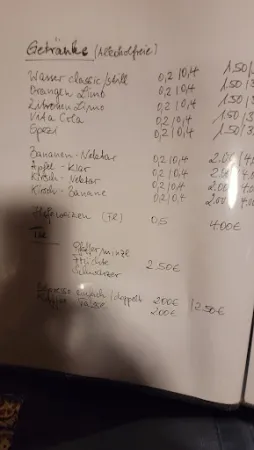 Getränke (Alkoholfreie)
Wasser classic/still 0,2/0,4 1.50/
Orangen Limo 0,2/0,4 1.50/3
Zitronen Limo 0,2/0,4 1.50/3
Vita Cola 0,2/0,4 1.50/3
Spezi 0,2/0,4 1.50/3
Bananen-Nektar 0,2/0,4 2.00/4
Apfel-Klar 0,2/0,4 2.00/4
Kirsch-Nektar 0,2/0,4 2.00/4
Kirsch-Banane 0,2/0,4 2.00/4.0
Hefeweizen 0,5 4.00€
Tee
Pfefferminze
Früchte 2.50€
Schwarzer
Espresso einfach/doppelt 2.00€ /2.50€
Tasse 2.00€